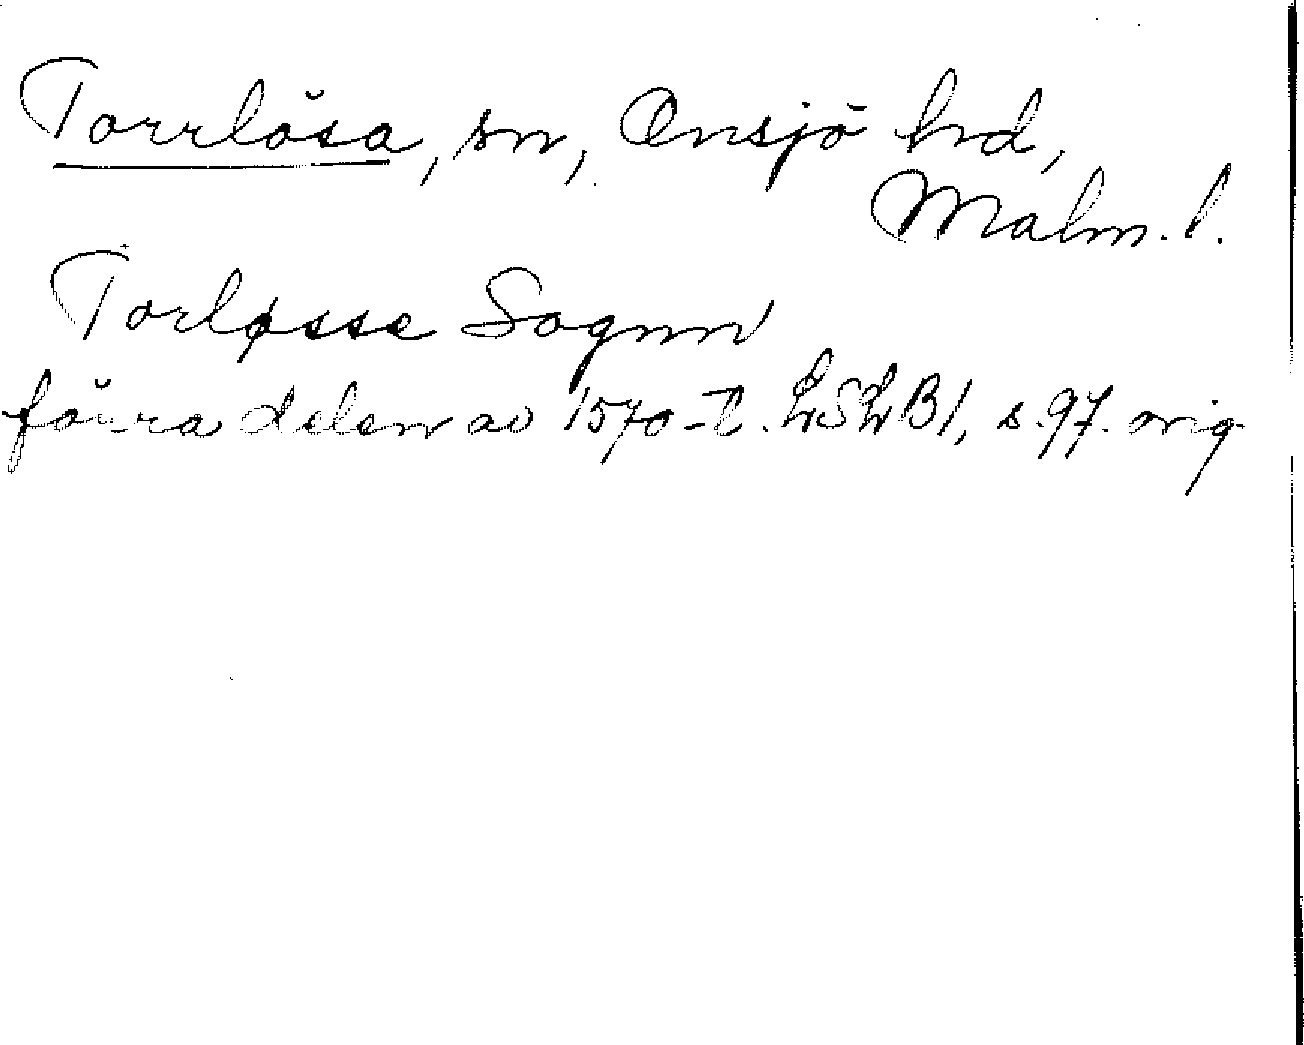 Torrlösa, sn, Onsjö hd,
Malm. l.
Torløsse Sognn
förra delen av 1570-t. LSLB1, s. 97. orig